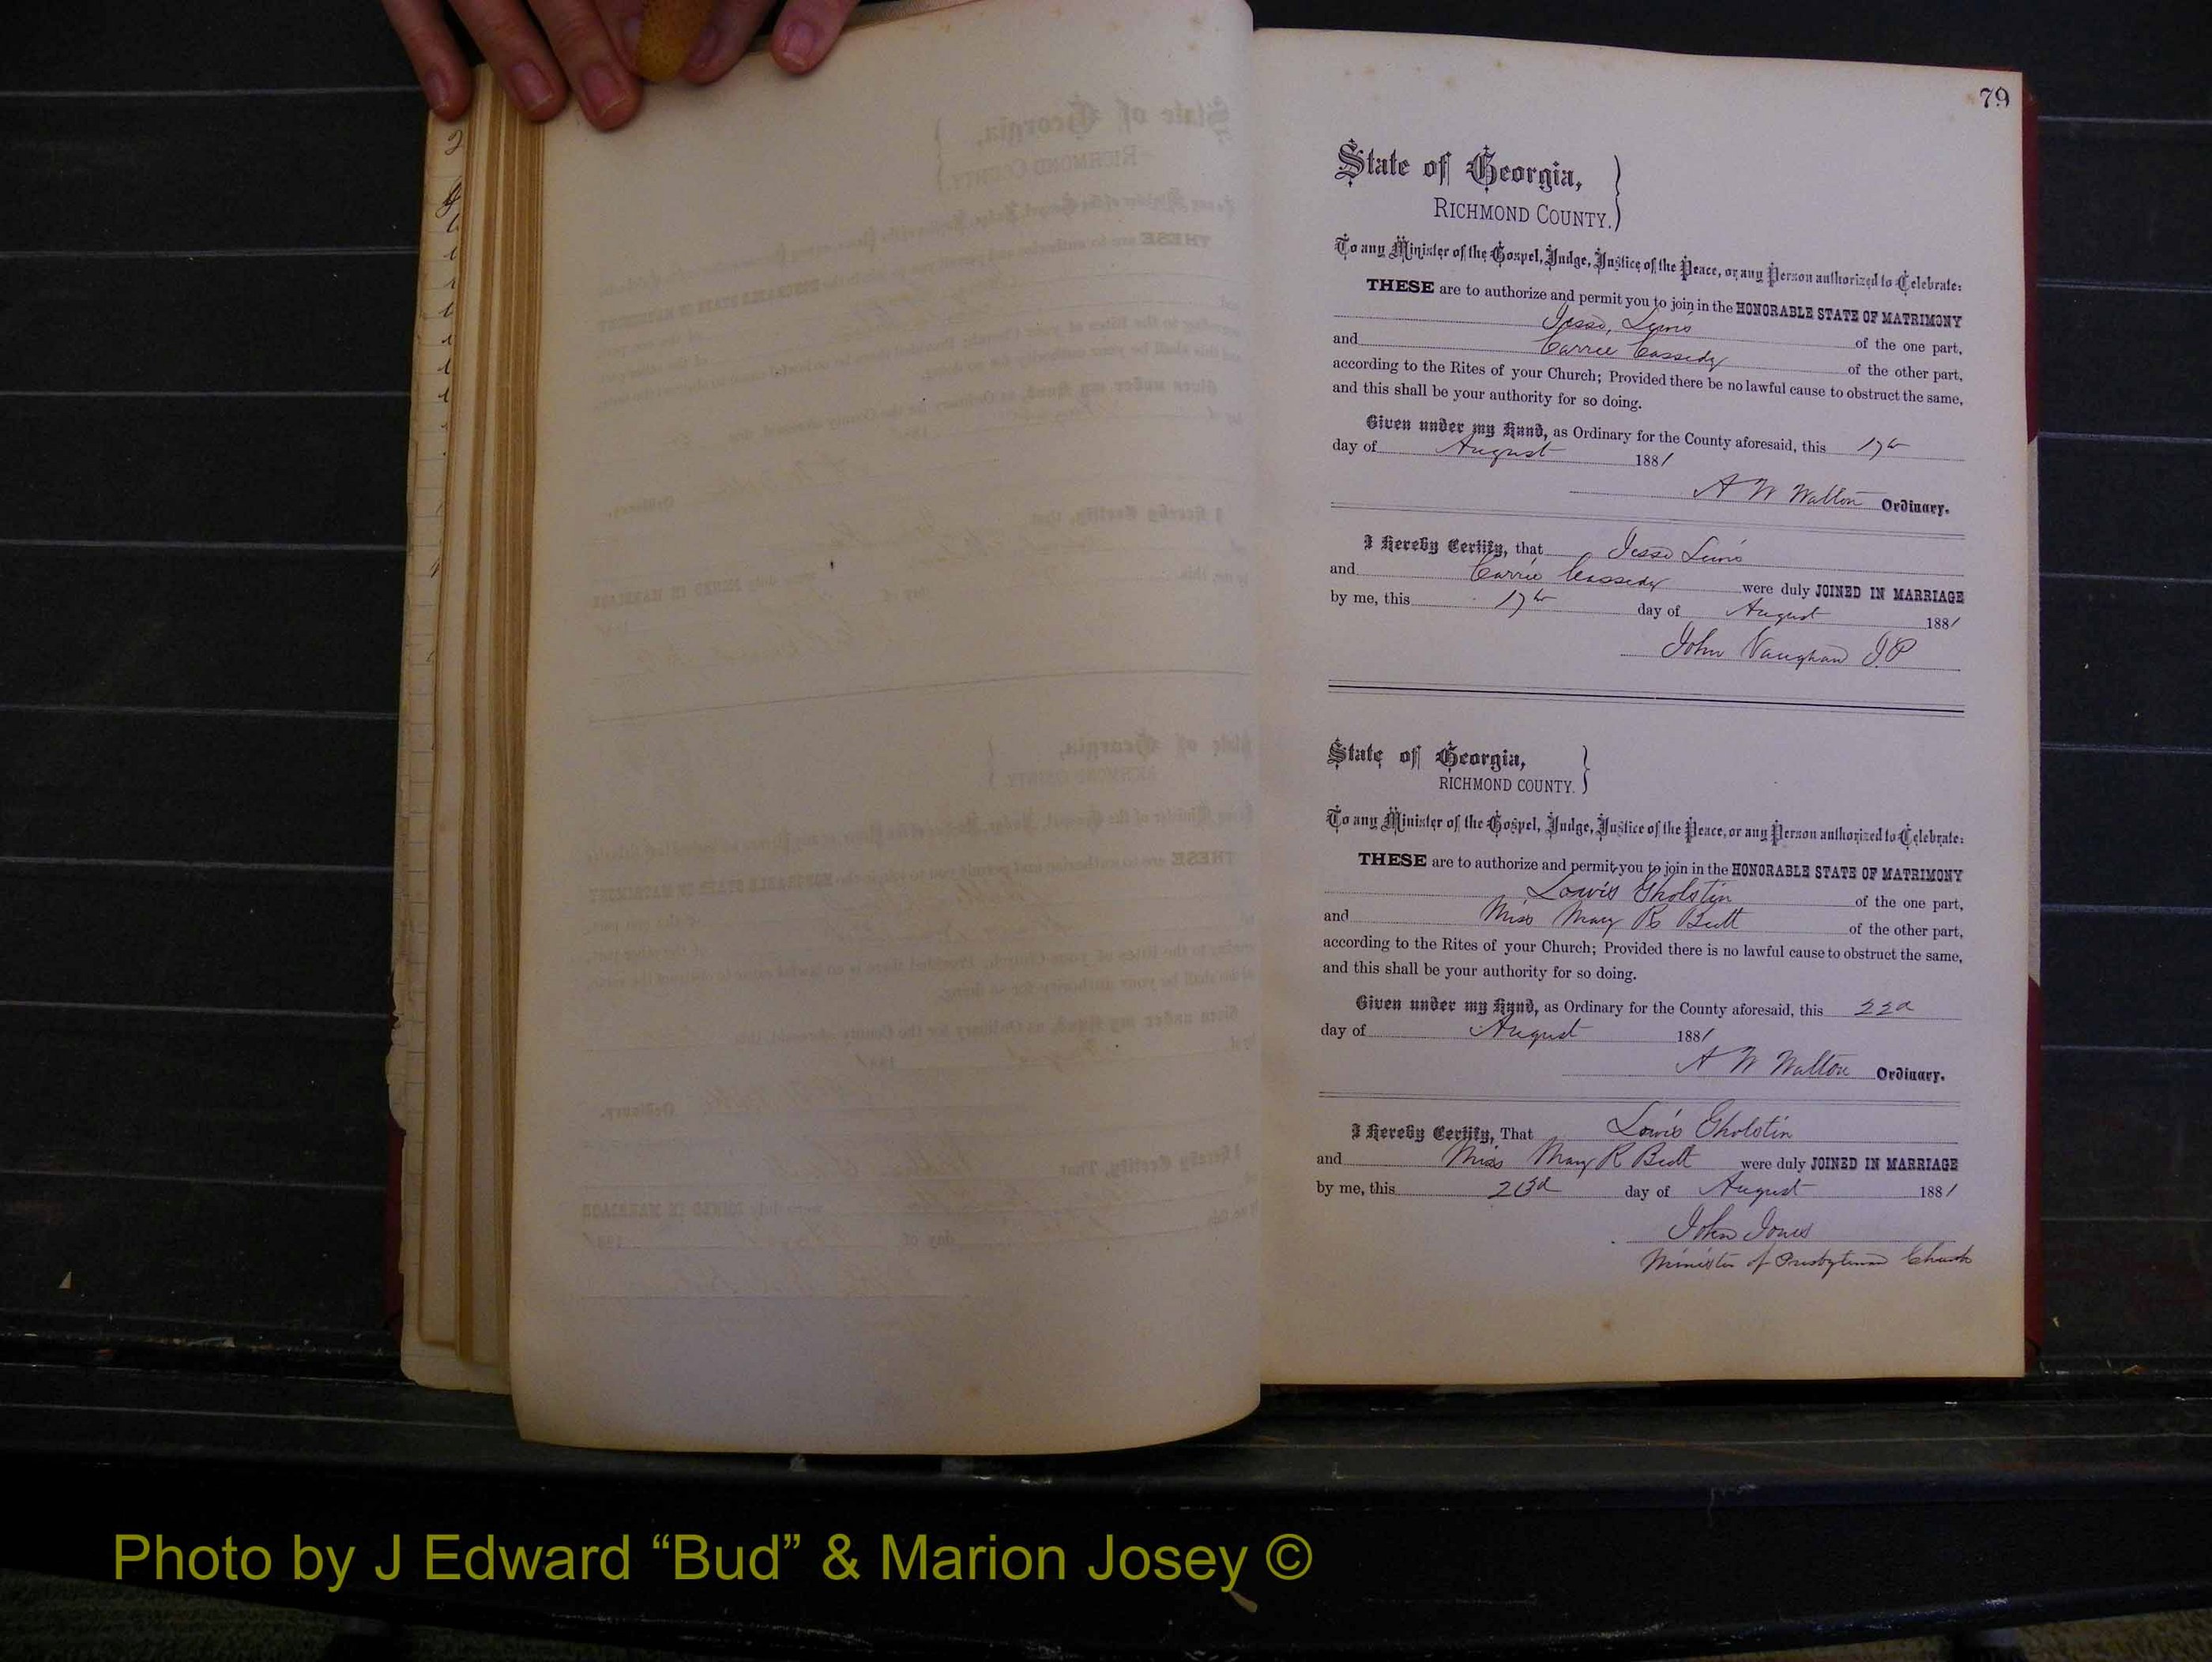 79
State of Georgia,
RICHMOND COUNTY.
To any Minister of the Gospel, Judge, Justice of the Peace, or any Person authorized to Celebrate:
THESE are to authorize and permit you to join in the HONORABLE STATE OF MATRIMONY
Jesse Lewis of the one part,
and Carrie Cassedy of the other part,
according to the Rites of your Church; Provided there be no lawful cause to obstruct the same,
and this shall be your authority for so doing.
Given under my Hand, as Ordinary for the County aforesaid, this 17th
day of August 1881
A W Walton Ordinary.
I Hereby Certify, that Jesse Lewis
and Carrie Cassedy were duly JOINED IN MARRIAGE
by me, this 17th day of August 1881
John Vaughan J.P
State of Georgia,
RICHMOND COUNTY.
To any Minister of the Gospel, Judge, Justice of the Peace, or any Person authorized to Celebrate:
THESE are to authorize and permit you to join in the HONORABLE STATE OF MATRIMONY
Lowis Gholstin of the one part,
and Miss Mary R Butt of the other part,
according to the Rites of your Church; Provided there is no lawful cause to obstruct the same,
and this shall be your authority for so doing.
Given under my Hand, as Ordinary for the County aforesaid, this 22d
day of August 1881
A W Walton Ordinary.
I Hereby Certify, That Lowis Gholstin
and Miss Mary R Butt were duly JOINED IN MARRIAGE
by me, this 23d day of August 1881
John Jones
Minister of Presbyterian Church
Photo by J Edward “Bud” & Marion Josey ©